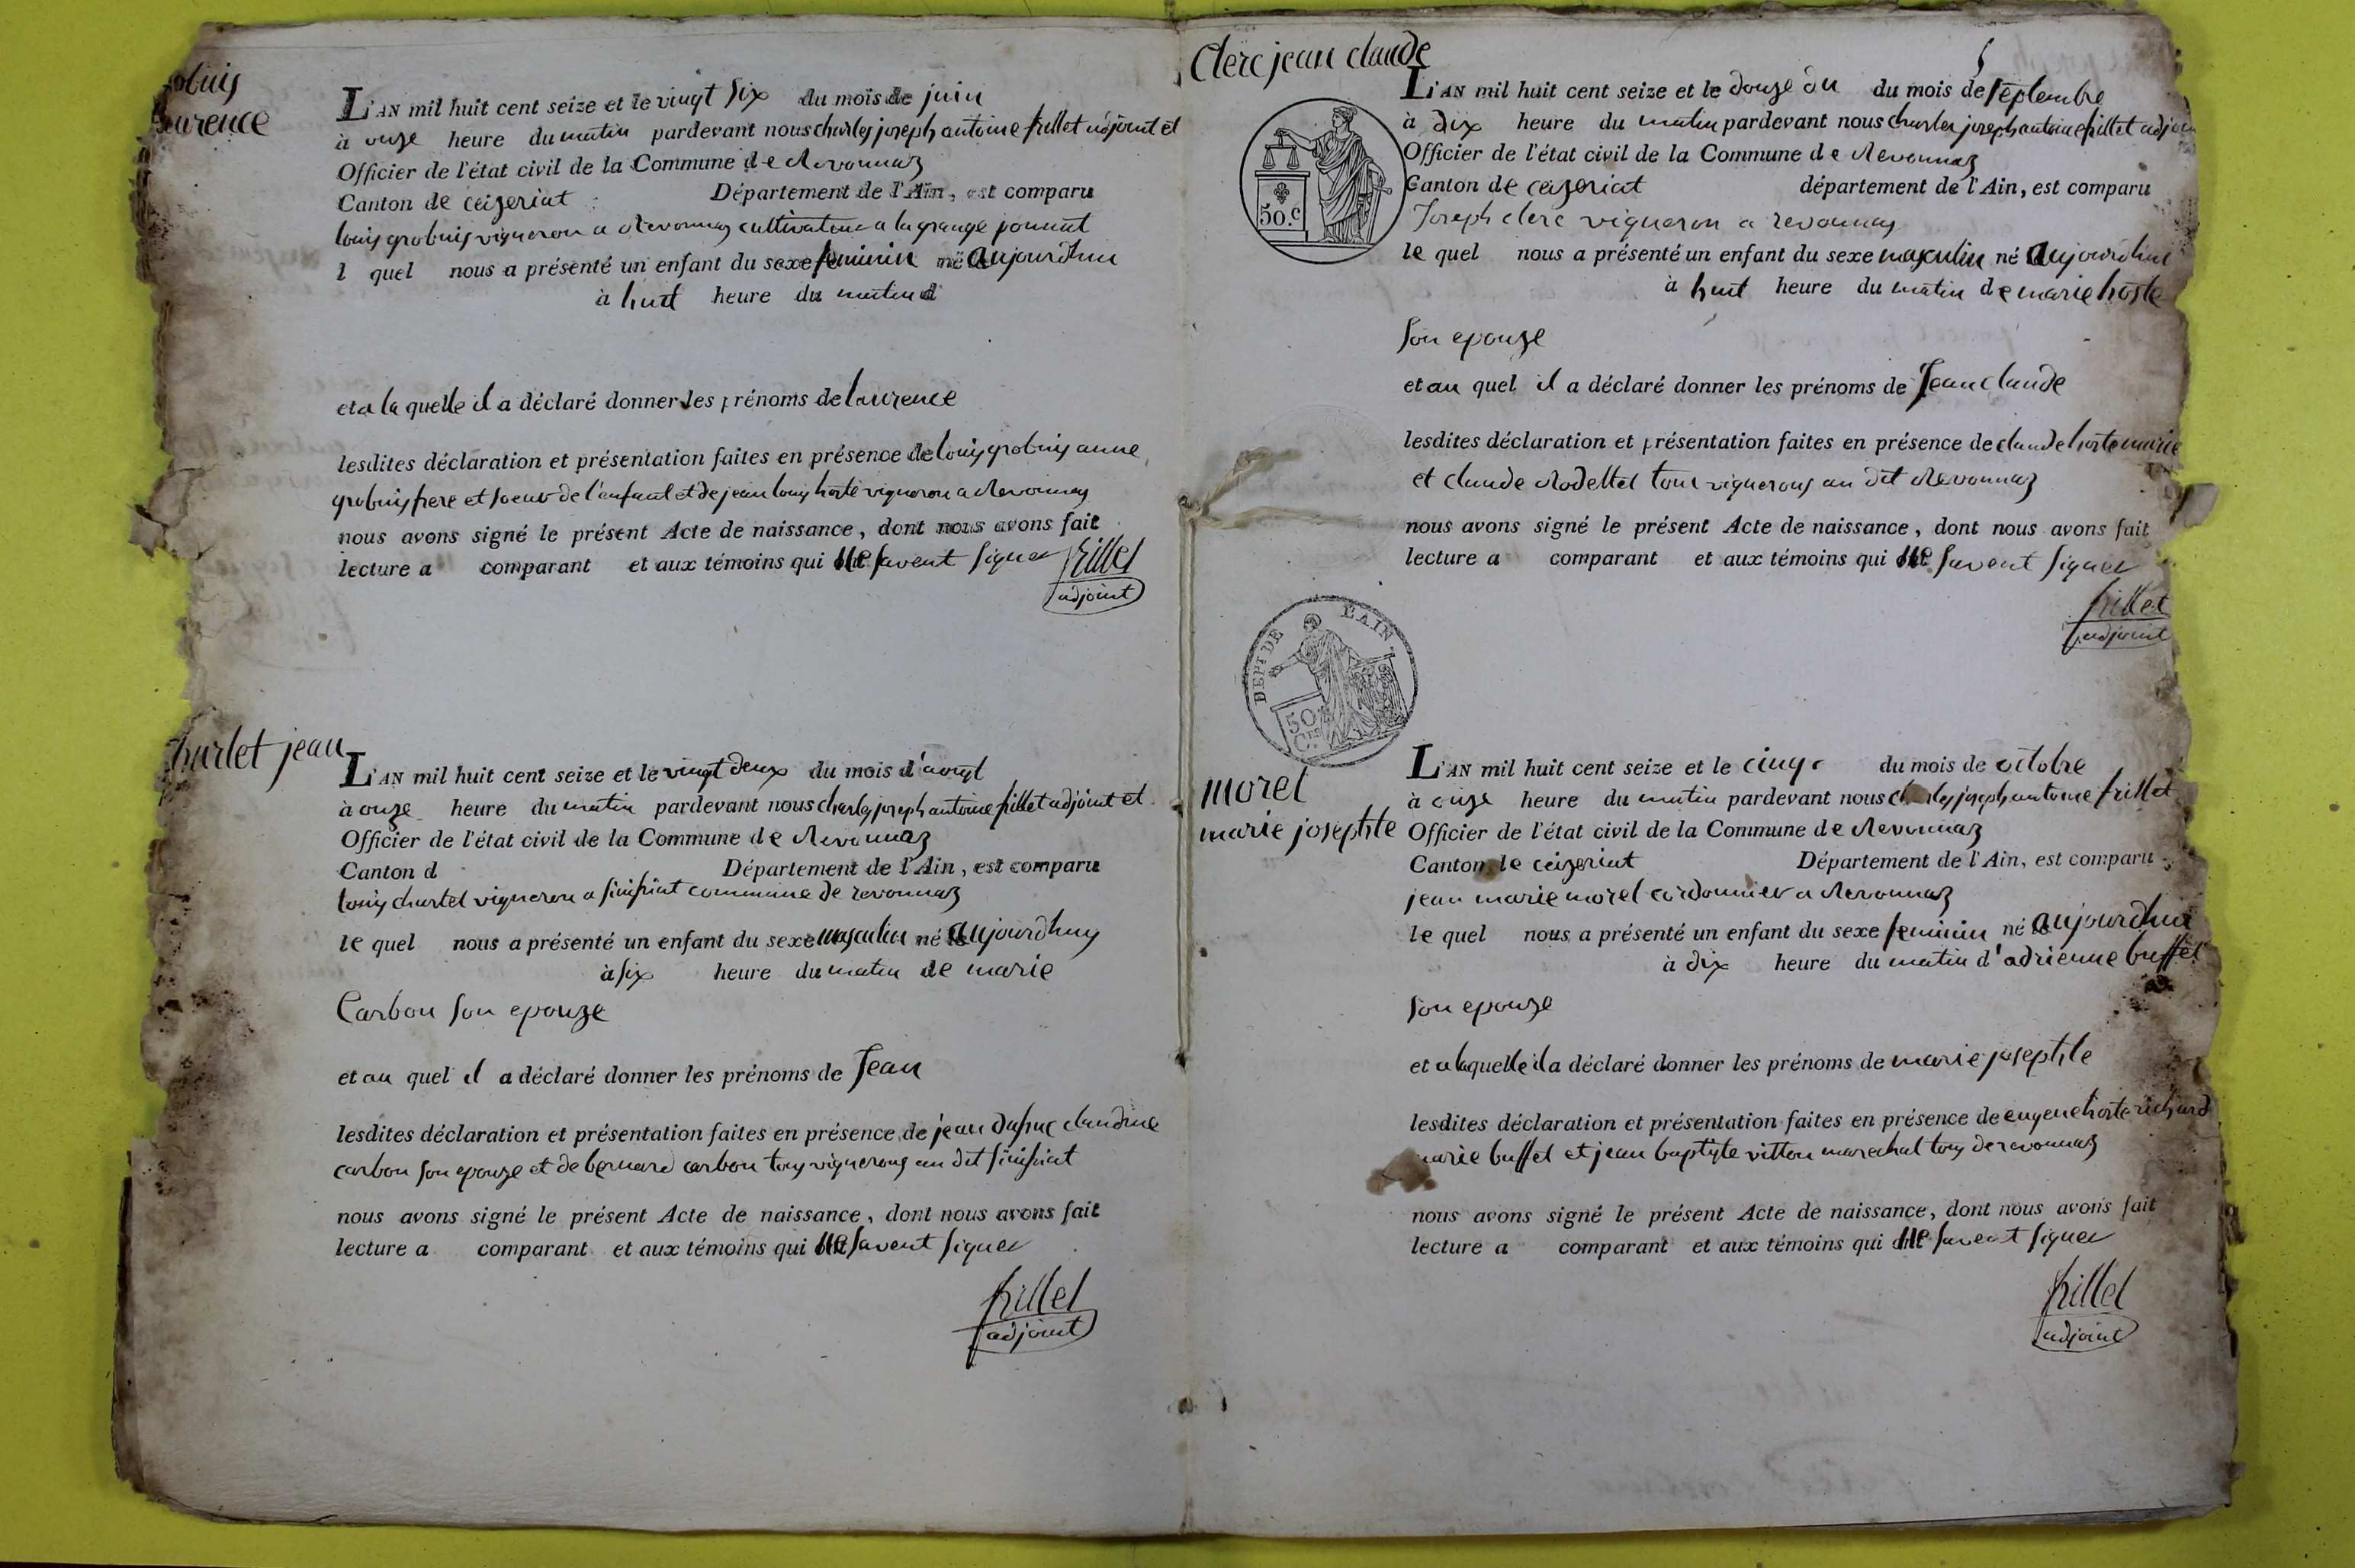 obuis
aurence
L'AN mil huit cent seize et le vingt six du mois de juin
à onze heure du matin pardevant nous charles joseph antoine frillet adjoint et
Officier de l'état civil de la Commune de Revonnaz
Canton de ceizeriat Département de l'Ain, est comparu
louis grobuis vigneron a Revonnaz cultivateur a la grange
l quel nous a présenté un enfant du sexe feminin né aujourdhui
à huit heure du matin d
et a la quelle il a déclaré donner les prénoms de laurence
lesdites déclaration et présentation faites en présence de louis grobuis anne
grobuis frere et soeur de l'enfant et de jean louis horte vigneron a Revonnaz
nous avons signé le présent Acte de naissance, dont nous avons fait
lecture a comparant et aux témoins qui ne savent signer frillet
adjoint
hurlet jean
L'AN mil huit cent seize et le vingt deux du mois d'
à onze heure du matin pardevant nous charles joseph antoine frillet adjoint et
Officier de l'état civil de la Commune de Revonnaz
Canton d Département de l'Ain, est comparu
louis vigneron a commune de revonnaz
le quel nous a présenté un enfant du sexe masculin né aujourdhuy
à six heure du matin de marie
Carbon son epouze
et au quel il a déclaré donner les prénoms de Jean
lesdites déclaration et présentation faites en présence de jean claudine
carbon son epouze et de bernard carbon tous vignerons au dit
nous avons signé le présent Acte de naissance, dont nous avons fait
lecture a comparant et aux témoins qui ne savent signer
frillet
adjoint
Clerc jean claude
L'AN mil huit cent seize et le douze du du mois de septembre
à dix heure du matin pardevant nous charles joseph antoine frillet adjoin
Officier de l'état civil de la Commune de Revonnaz
Canton de ceizeriat département de l'Ain, est comparu
50.c
Joseph clerc vigneron a revonnaz
le quel nous a présenté un enfant du sexe masculin né aujourdhui
à huit heure du matin de marie horte
son epouze
et au quel il a déclaré donner les prénoms de Jean claude
lesdites déclaration et présentation faites en présence de claude horte marie
et claude Rodettet tous vignerons au dit Revonnaz
nous avons signé le présent Acte de naissance, dont nous avons fait
lecture a comparant et aux témoins qui ne savent signer
frillet
adjoint
DEPT DE L'AIN
50
Ces
morel
marie josephte
L'AN mil huit cent seize et le cinq du mois de octobre
à onze heure du matin pardevant nous charles joseph antoine frillet
Officier de l'état civil de la Commune de Revonnaz
Canton de ceizeriat Département de l'Ain, est comparu
jean marie morel cordonnier a Revonnaz
le quel nous a présenté un enfant du sexe feminin né aujourdhui
à dix heure du matin d'adrienne buffet
son epouze
et a laquelle il a déclaré donner les prénoms de marie josephte
lesdites déclaration et présentation faites en présence de eugene horte richard
marie buffet et jean baptiste vitton marechal tous de revonnaz
nous avons signé le présent Acte de naissance, dont nous avons fait
lecture a comparant et aux témoins qui ne savent signer
frillet
adjoint